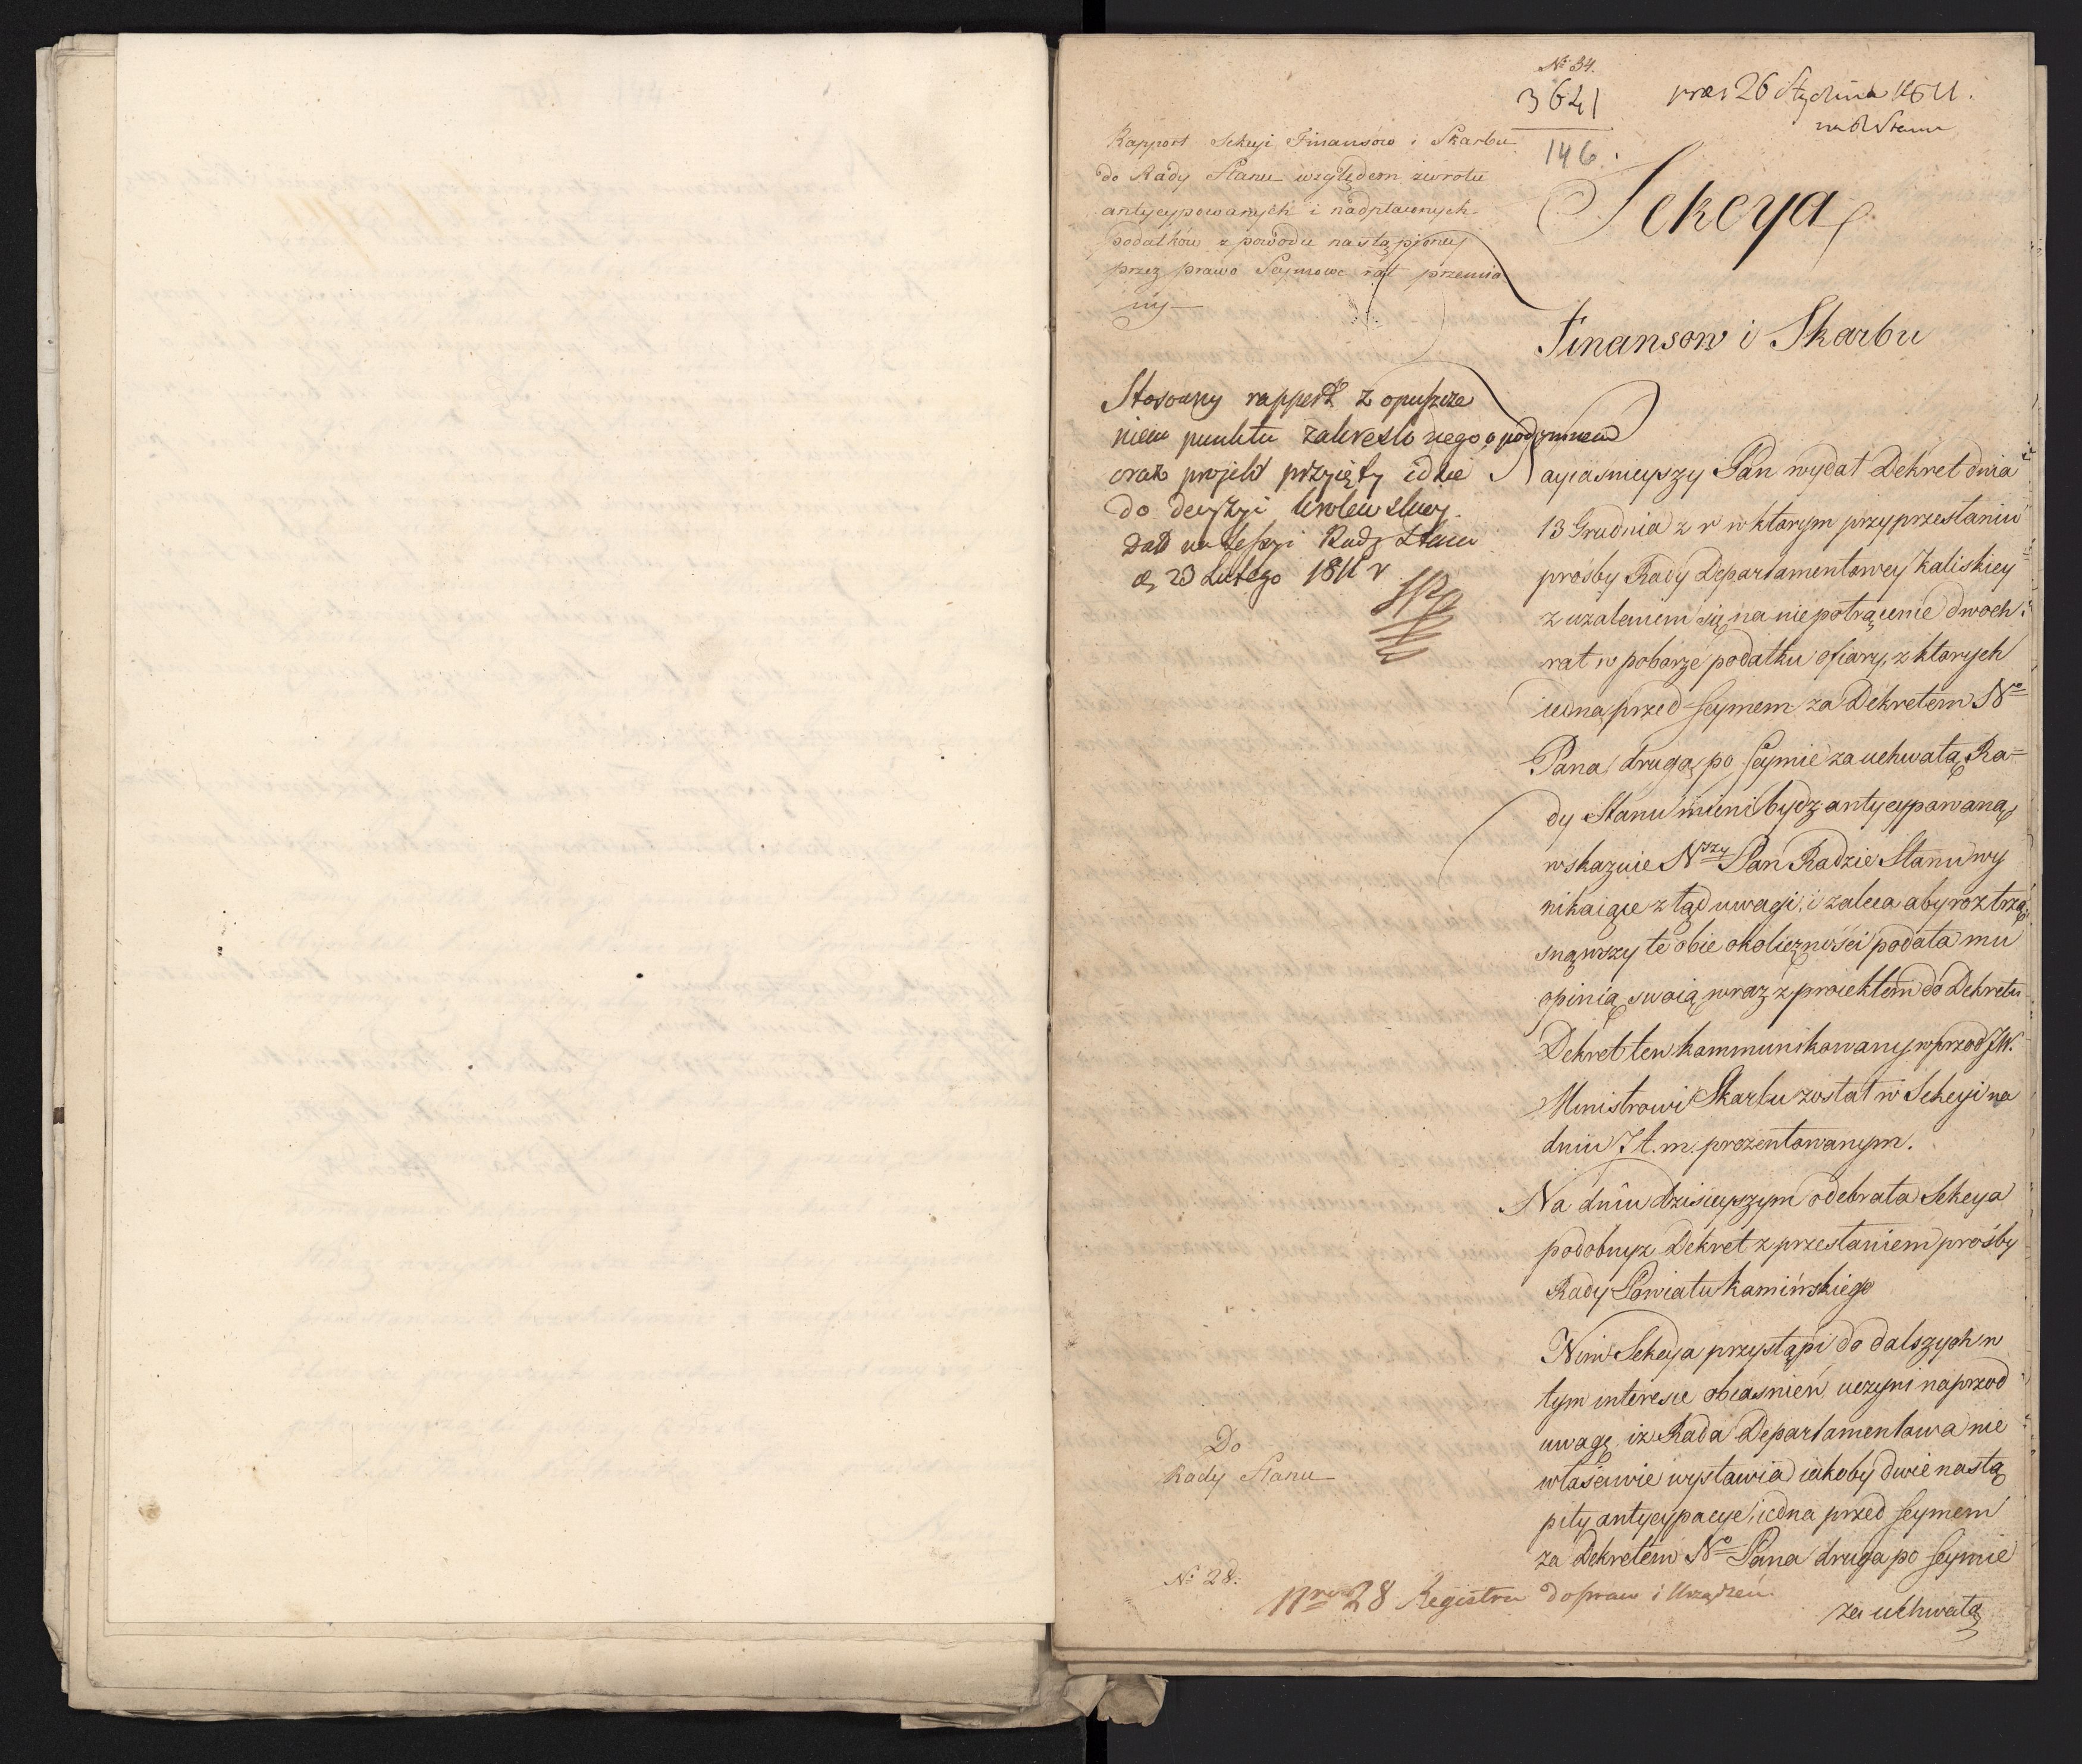 № 34.
3641
146.
26 Stycznia 1811.
Rapport Sekcyi Finansow i Skarbu
do Rady Stanu względem zwrotu
antycypowanych i nadpłaconych
podatków z powodu nastąpioney
przez prawo Seymowe rat przemia
ny
Sekcya
Finansow i Skarbu
Stosowny rapport z opuszcze
niem punktu zakreślonego
oraz projekt przyięty idzie
do decyzyi Krolewskiey.
Dań na Sessyi Rady Stanu
d. 23 Lutego 1811 r
Nayiaśnieyszy Pan wydał Dekret dnia
13 Grudnia z r w ktorym przy przesłaniu
prośby Rady Departamentowey Kaliskiey
z uzaleniem się na niepotrącenie dwoch
rat w poborze podatku ofiary, z ktorych
iedna przed Seymem za Dekretem No
Pana druga po Seymie za uchwałą Ra=
dy Stanu mieni bydz antycypowaną,
wskazuie Nszy Pan Radzie Stanu wy
nikaiące ztąd uwagi, i zaleca aby roztrzą
snąwszy te obie okoliczności podała mu
opinią swoią wraz z proiektem do Dekretu
Dekret ten kommunikowany wprzod JW.
Ministrowi Skarbu został w Sekcyi na
dniu 7 t. m. prezentowanym.
Na dniu dzisieyszym odebrała Sekcya
podobnyz Dekret z przesłaniem prośby
Rady Powiatu Kamińskiego
Nim Sekcya przystąpi do dalszych w
tym interesie obiasnień, uczyni naprzod
uwagę, iz Rada Departamentowa nie
właściwie wystawia iakoby dwie nastą
piły antycypacye, iedna przed Seymem
za Dekretem No Pana druga po Seymie
za uchwałą
Do
Rady Stanu
№ 28.
Nro 28 Registru do spraw i Urządzeń